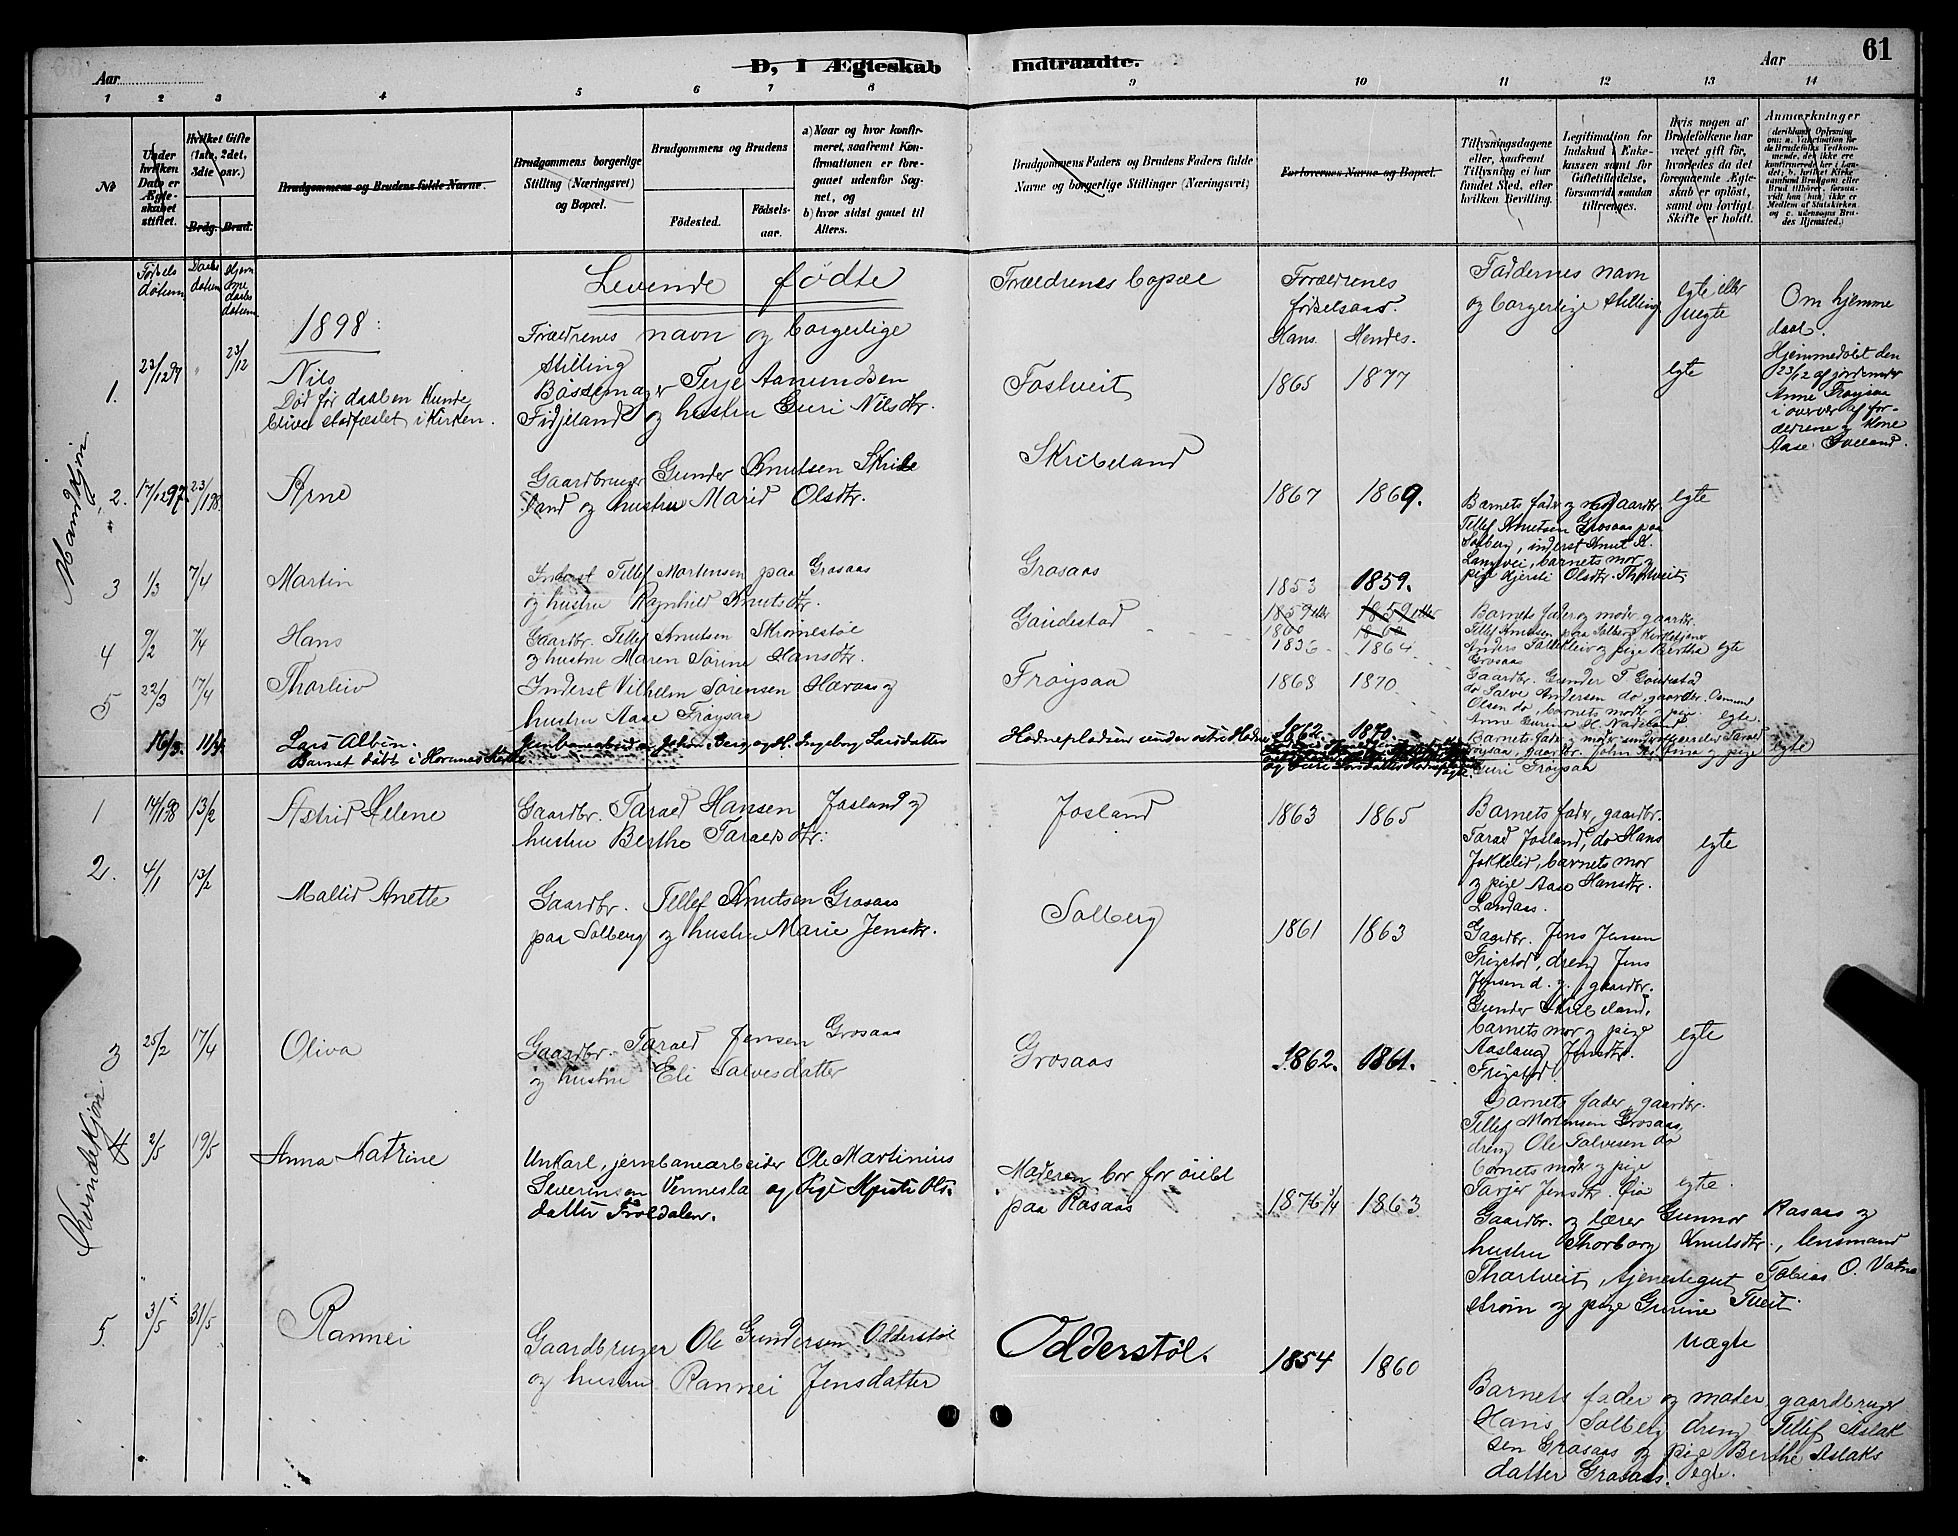 61
Aar
D, I Ægteskab Indtraadte.
Aar
1 2 3 4 5 6 7 8 9 10 11 12 13 14
№
Under
hvilken
Dato er
Ægte-
skabet
stiftet.
Hvilket Gifte
(1ste, 2det,
3dte osv.)
Brdg. Brud.
Brudgommens og Brudens fulde Navne.
Brudgommens borgerlige
Stilling (Næringsvei)
og Bopæl.
Brudgommens og Brudens
Fødested.
Fødsels-
aar.
a) Naar og hvor konfir-
meret, saafremt Kon-
firmationen er fore-
gaaet udenfor Sog-
net, og
b) hvor sidst gaaet til
Alters.
Brudgommens Faders og Brudens Faders fulde
Navne og borgerlige Stillinger (Næringsvei)
Forlovernes Navne og Bopæl.
Tillysningsdagene
eller, saafremt
Tillysning ei har
fundet Sted, efter
hvilken Bevilling.
Legitimation for
Indskud i Enke-
kassen samt for
Giftetilladelse,
forsaavidt saadan
tiltrænges.
Hvis nogen af
Brudefolkene har
været gift før,
hvorledes da det
foregaaende Ægte-
skab er opløst,
samt om lovligt
Skifte er holdt.
Anmærkninger
(deriblandt Oplysning
om: a. Vaccination for
de Brudefolks Vedkom-
mende, der ikke ere
konfirmerede her i Lan-
det; b. hvilket Kirke-
samfund Brudgom eller
Brud tilhører, forsaa-
vidt han (hun) ikke er
Medlem af Statskirken,
og c. udensogns Bru-
des Hjemsted.)
Fødsels
datum
Daabs
datum
hjem
me
daabs
datum
Levende fødte
Forældrenes bopæl
Forældrenes
fødselsaar.
Hans. Hendes.
Faddernes navn
og borgerlige stilling
egte eller
uegte
Om hjemme
daab.
1898:
Forældrenes navn og borgerlige
stilling
Mandkjøn
1. 22/12 97 " 23/12
Nils
Død før daaben kunde
blive stadfæstet i Kirken.
Bøssemager Terje Aamundsen
Fidjeland og hustru Guri Nilsdtr.
Fostveit
1865 1877
egte
Hjemmedøbt den
23/12 af jordemoder
Anne Frøysaa
i overvær af for-
ældrene og kone
Aase Sveland.
2. 17/12 97. 23/1 98.
Arne
Gaardbruger Gunder Knutsen Skribe
land og hustru Marid Olsdtr.
Skribeland
1867 1869.
Barnets fader og mor, gaardbr.
Tellef Knutsen Grosaas paa
Solberg, inderst Knut K.
barnets mor og
pige Kjersti Olsdtr. Thortveit
egte
3 1/3 7/4
Martin
Inderst Tellef Mortensen paa Grosaas
og hustru Ragnhild Knutsdtr.
Grosaas
1853 1859.
4 9/2 7/4
Hans
Gaardbr. Tellef Knutsen Skromestøl
og hustru Maren Sorine Hansdtr.
Gaudestad
1859 eller 1859 eller
1860 1860
1836 1864
Barnets fader og moder, gaardbr.
Tellef Knutsen paa Solberg, Kirketjener
Anders og pige Berthe
Grosaas
egte
5 22/3 17/4
Thorleiv
Inderst Vilhelm Sørensen Haraas og
hustru Aase Frøysaa
Frøysaa
1868 1870
Gaardbr. Gunder T. Gaudestad
do Salve Andersen do, gaardbr. Osmund
Olsen do, barnets moder og pige
Anne Gurine H. Nadeland
egte.
16/3. 11/4.
Lars Albin.
Barnet døbt i Hornnes Kirke
Jernbanearbeider Johan Berg og H. Ingeborg Larsdatter
Hodnepladsen under østre Hodne
1862. 1870.
Barnets fader og moder, underofficerselev Tarald
Frøysaa, gaardbr. John og pige
Guri Frøysaa
egte
Kvindekjøn
1 14/1 98 13/2
Astrid Helene
Gaardbr. Tarald Hansen Josland og
hustru Berthe Taraldsdtr.
Josland
1863 1865
Barnets fader, gaardbr.
Tarald Josland, do Hans
Jokkelid, barnets mor
og pige Aase Hansdtr.
Landaas.
egte
2. 4/1 13/2
Mallid Anette
Gaardbr. Tellef Knutsen Grosaas
paa Solberg og hustru Marie Jensdtr.
Solberg
1861 1863
Gaardbr. Jens Jensen
Frigstad, dreng Jens
Jensen d. y., gaardbr.
Gunder Skribeland,
barnets mor og pige
Aaslaug Jensdtr.
Frigstad
egte
3 25/2 17/4
Oliva
Gaardbr. Tarald Jensen Grosaas
og hustru Eli Salvesdatter
Grosaas
1862. 1861.
Barnets fader, gaardbr.
Tellef Mortensen Grosaas,
dreng Ole Salvesen do
barnets moder og pige
Tarjer Jensdtr. Øia
egte.
4 2/5 19/5
Anna Katrine
Unkarl, jernbanearbeider Ole Martinius
Severinsen Vennesla og Pige Kjersti Ols-
datter Troldalen.
Moderen bor for øieblik
paa Rosaas
1876 1/4 1863
Gaardbr. og lærer Gunnar Rosaas og
hustru Thorborg Knutsdtr., lensmand
Thortveit, tjenestegut Tobias O. Vatne
strøm og pige Gurine Tveit.
uægte
5. 3/5 31/5
Rannei
Gaardbruger Ole Gundersen Odderstøl
og hustru Rannei Jensdatter
Odderstøl.
1854 1860
Barnets fader og moder, gaardbruger
Hans Solberg, dreng Tellef Aslak
sen Grosaas og pige Berthe Aslaks
datter Grosaas. egte.